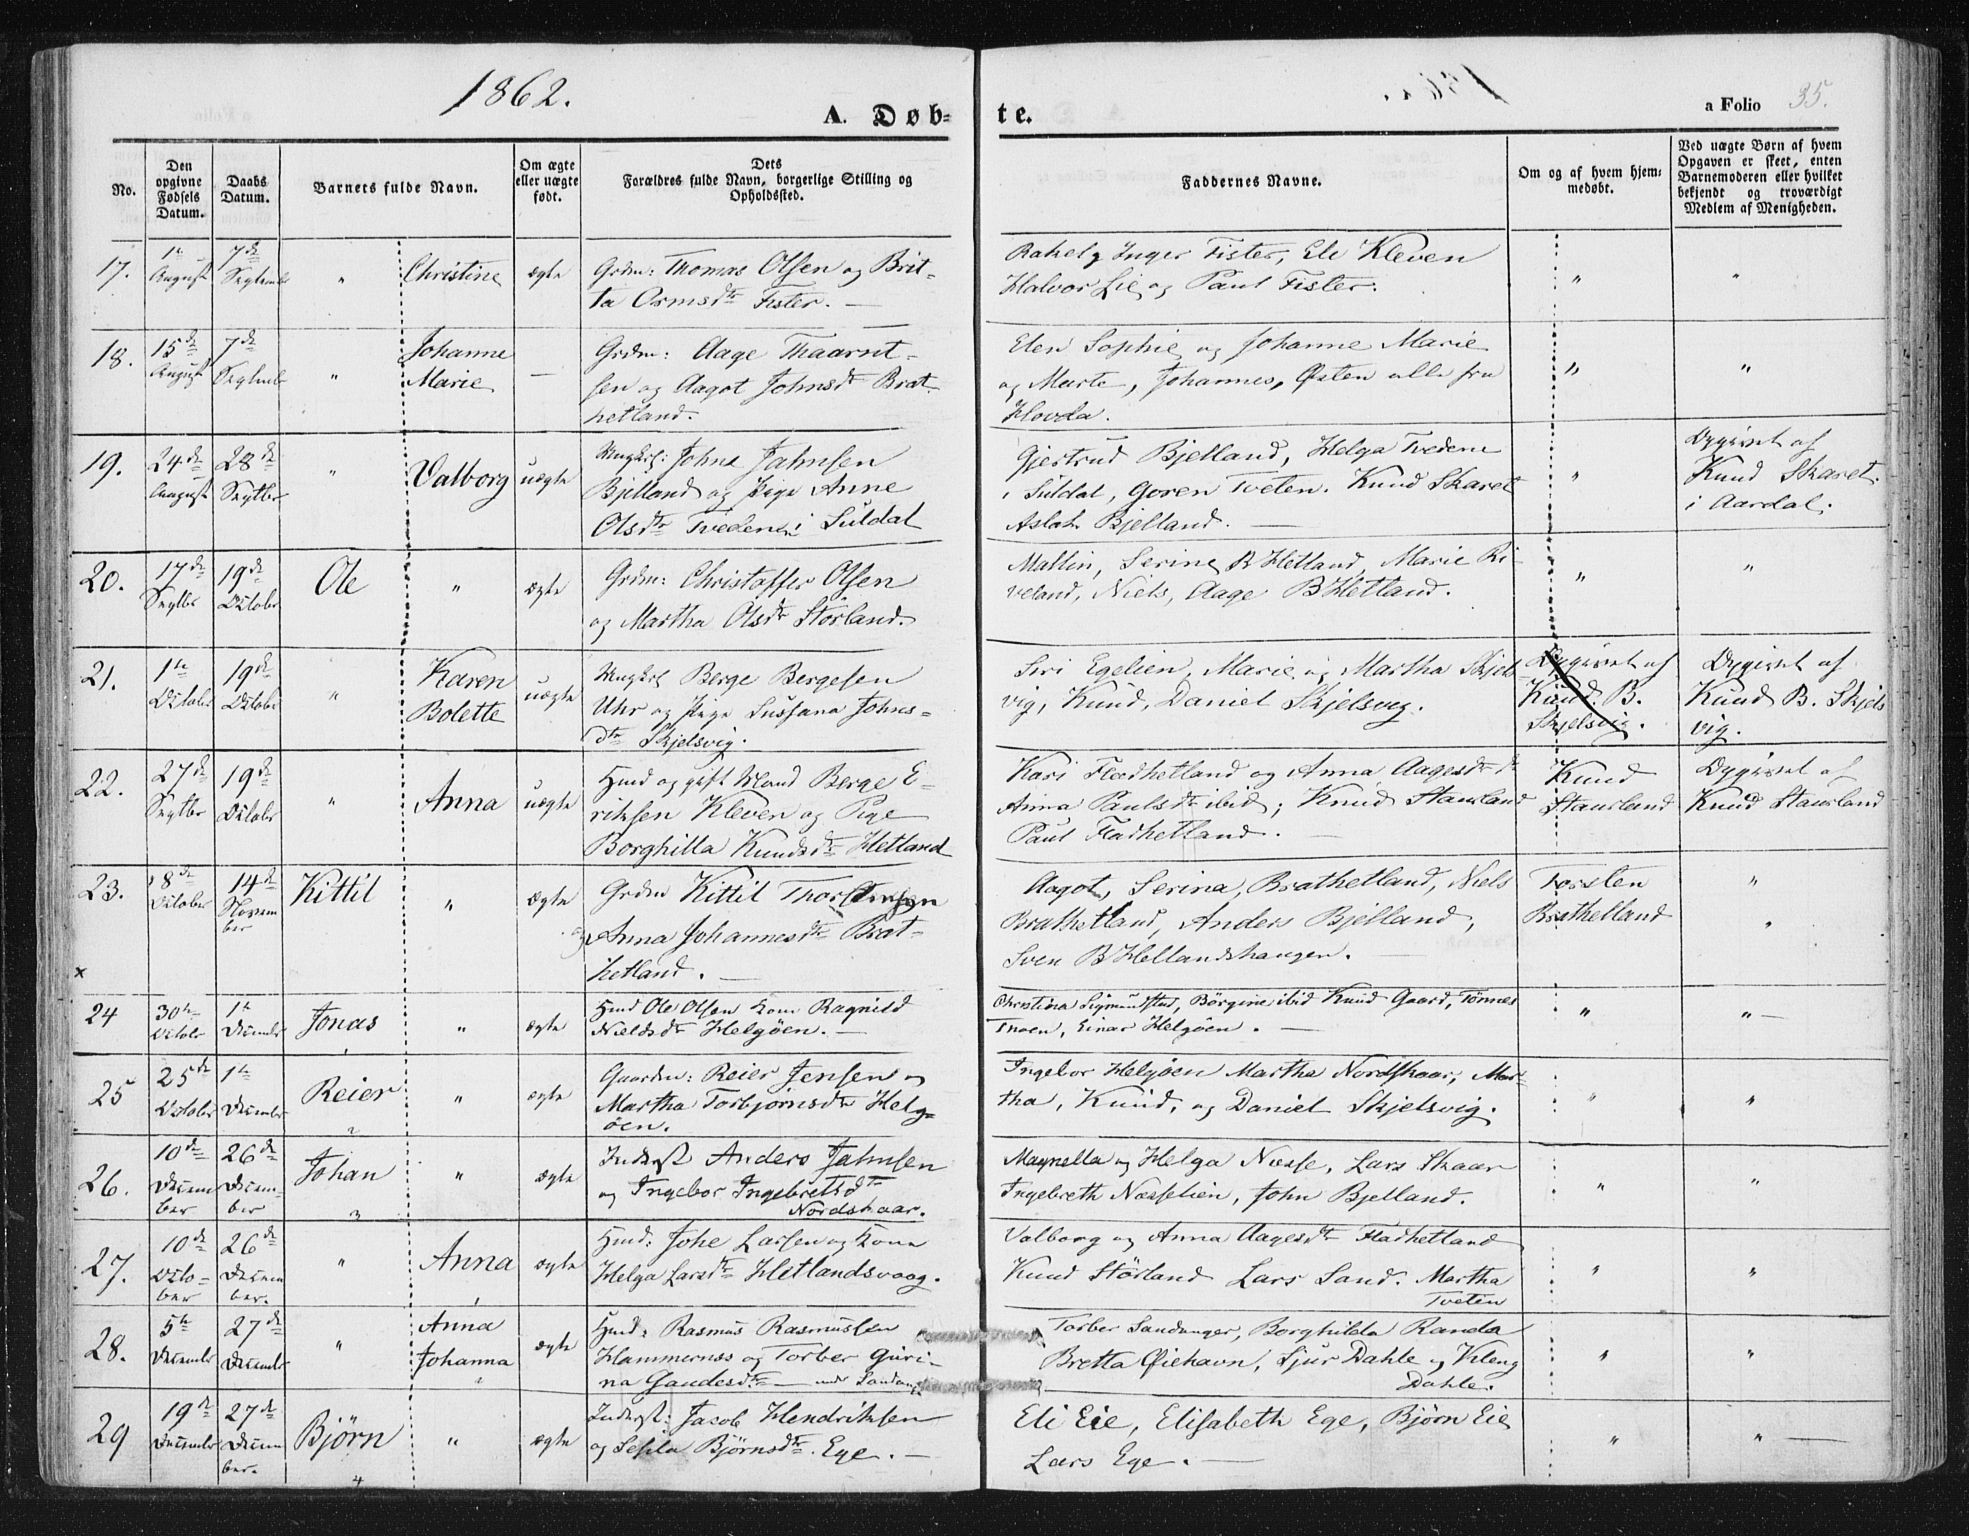 1862.
A. Døb-
te.
a Folio 35.
No.
Den opgivne Fødsels Datum.
Daabs Datum.
Barnets fulde Navn.
Om ægte eller uægte født.
Dets Forældres fulde Navn, borgerlige Stilling og Opholdssted.
Faddernes Navne.
Om og af hvem hjemmedøbt.
Ved uægte Børn af hvem Opgaven er skeet, enten Barnemoderen eller hvilket bekjendt og troværdigt Medlem af Menigheden.
17. 1te August 7de Septembr " Christine ægte
Grdm: Thomas Olsen og Brit-
ta Ormsdtr Fister. —
Rakel, Inger Fister, Ele Kleven
Halvor Lie og Paul Fister.
" "
18. 15de August 7de Septembr " Johanne Marie —
Grdm: Aage Thaarnt-
sen og Aagot Johnsdtr Brat-
hetland.
Elen Sophie og Johanne Marie
og Marte, Johannes, Østen alle fra
Hovda.
" "
19. 24de August 28de Septbr " Valborg uægte
Ungkrl: Johne Jahnsen
Bjelland og Pige Anne
Olsdtr Tvedene i Suldal
Gjertrud Bjelland, Helga Tvedene
i Suldal, Goren Tveten. Knud Skaret
Aslak Bjelland. —
"
Opgivet af
Knud Skaret.
i Aardal.
20. 17de Septbr 19de Octobr Ole " ægte
Grdm: Christoffer Olsen
og Martha Olsdtr Storland.
Mallin, Serine BHetland, Marie Ri-
veland, Niels, Aage BHetland.
" "
21. 1te Octobr 19de Octobr " Karen Bolette uægte
Ungkrl Berge Bergesen
Uhr og Pige Sussana Johns-
dtr Skjelsvig.
Siri Egelien, Marie og Martha Skjels
vig, Knud, Daniel Skjelsvig.
Opgivet af
Knud. B.
Skjelsvig.
Opgivet af
Knud B. Skjels
vig.
22. 27de Septbr 19de Octobr " Anna uægte
Hmd og gift Mand Berge E-
riksen Kleven og Pige
Borghilla Knudsdtr Hetland
Kari Fladhetland og Anna Aagesdtr
Anna Paulsdtr ibid; Knud Staurland
Paul Fladhetland. —
Knud
Staurland
Opgivet af
Knud Staurland
23. 18de Octobr 14de November Kittil " ægte
Grdm Kittil Thorstensen
og Anna Johannesdtr Brat-
hetland. —
Aagot, Serina, Brathetland, Niels
Brathetland, Anders Bjelland,
Sven BHetlandshaugen. —
Torsten
Brathetland
"
"
x
24 30te Octobr 1te Decembr Jonas " ægte
Hmd Ole Olsen Kone Ragnild
Nieldsdtr Helgøen. —
Christina Sigmundstad, Börgine ibid Knud Gaard, Tönnes
Einar Helgöen. —
" " —
25 25de Octobr 1te Decembr Reier " ægte
Gaardm: Reier Jensen og
Martha Torbjörnsdtr Helg-
öen.
Ingebor Helgöen Martha Nordskaar, Mar-
tha, Knud, og Daniel Skjelsvig.
" "
26. 10de December 26de December Johan " ægte
Inderst Anders Jahnsen
og Ingebor Ingebretsdtr
Nordskaar.
Magnella og Helga Næsse, Lars Skaar
Ingebreth Næsselien, John Bjelland.
" "
27. 10de October 26de December. " Anna ægte
Hmd: Johe Larsen og Kone
Helga Larsdtr Hetlandsvaag.
Valborg og Anna Aagesdtr Fladhetland
Knud Störland Lars Sand. Martha
Tveten
" "
28. 5te Decembr 27de Decembr " Anna Johanna ægte
Hmd: Rasmus Rasmussen
Hammernæs og Torber Guri-
na Gaudesdtr —
Torber Sandanger, Borghilda Randa
Bretta Øiehavn, Sjur Dahle og Kleng
Dahle.
" "
29 19de Decembr 27de December. Björn " ægte
Inderst: Jacob Hendriksen
og Sesila Björnsdtr Ege. —
Eli Eie, Elisabeth Ege, Björn Eie
Lars Ege. —
" " —